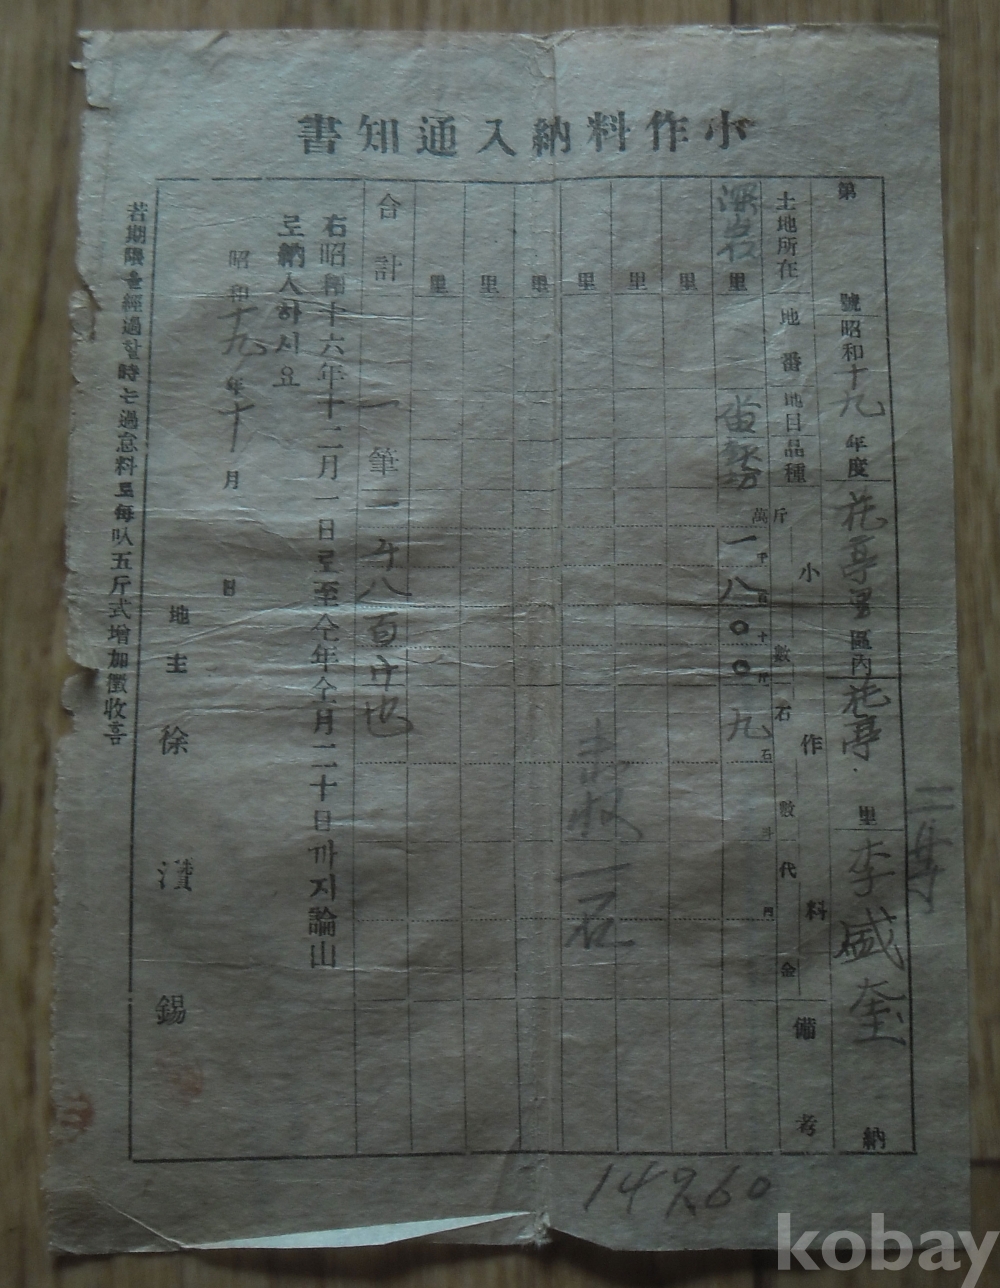 小作料納入通知書
第 號 昭和十九年度 花亭里 區內 花亭 里 李盛奎 納
土地所在 地番 地目 品種 小作料 備考
斤數 石數 代金
萬 千 百 十 斤 石 斗 円
里 一八〇〇 九
里
里
里 未收一石
里
里
里
合計 一筆 一千八百斤也
右昭和十六年十二月一日로至仝年仝月二十日까지論山
로納入하시요
昭和十九年十月 日
地主 徐 濽 錫
若期限을經過할時는過怠料로每叺五斤式增加徵收喜
149.60
kobay